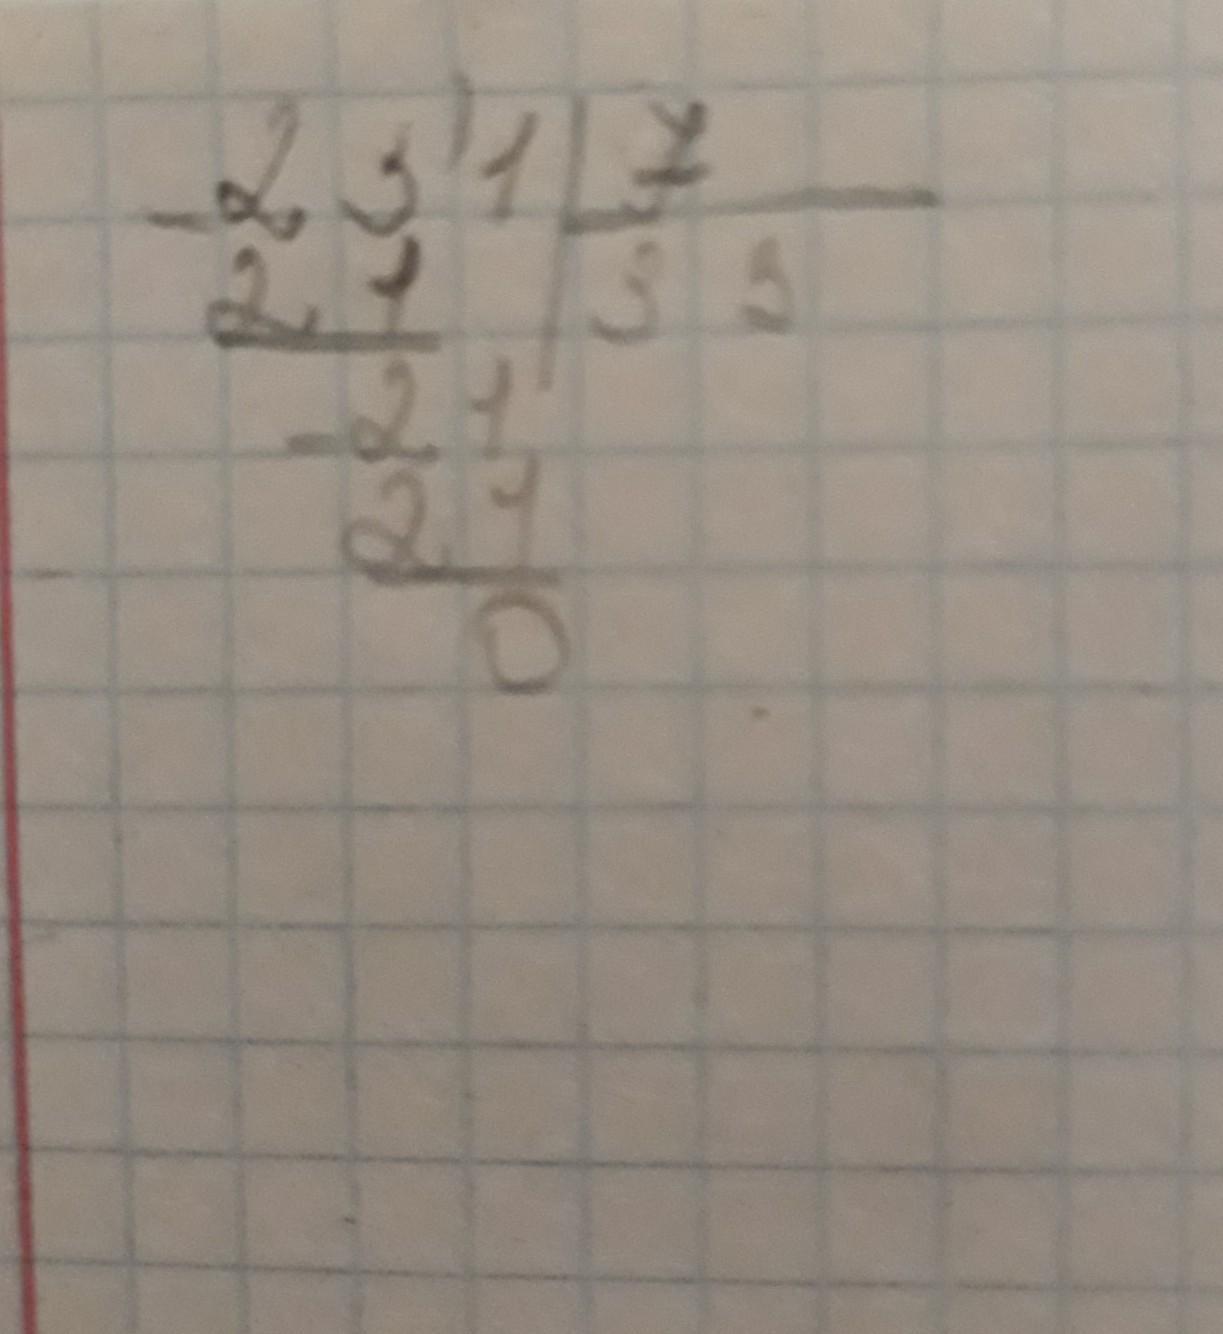 -23'1|7
21|33
-21
21
0